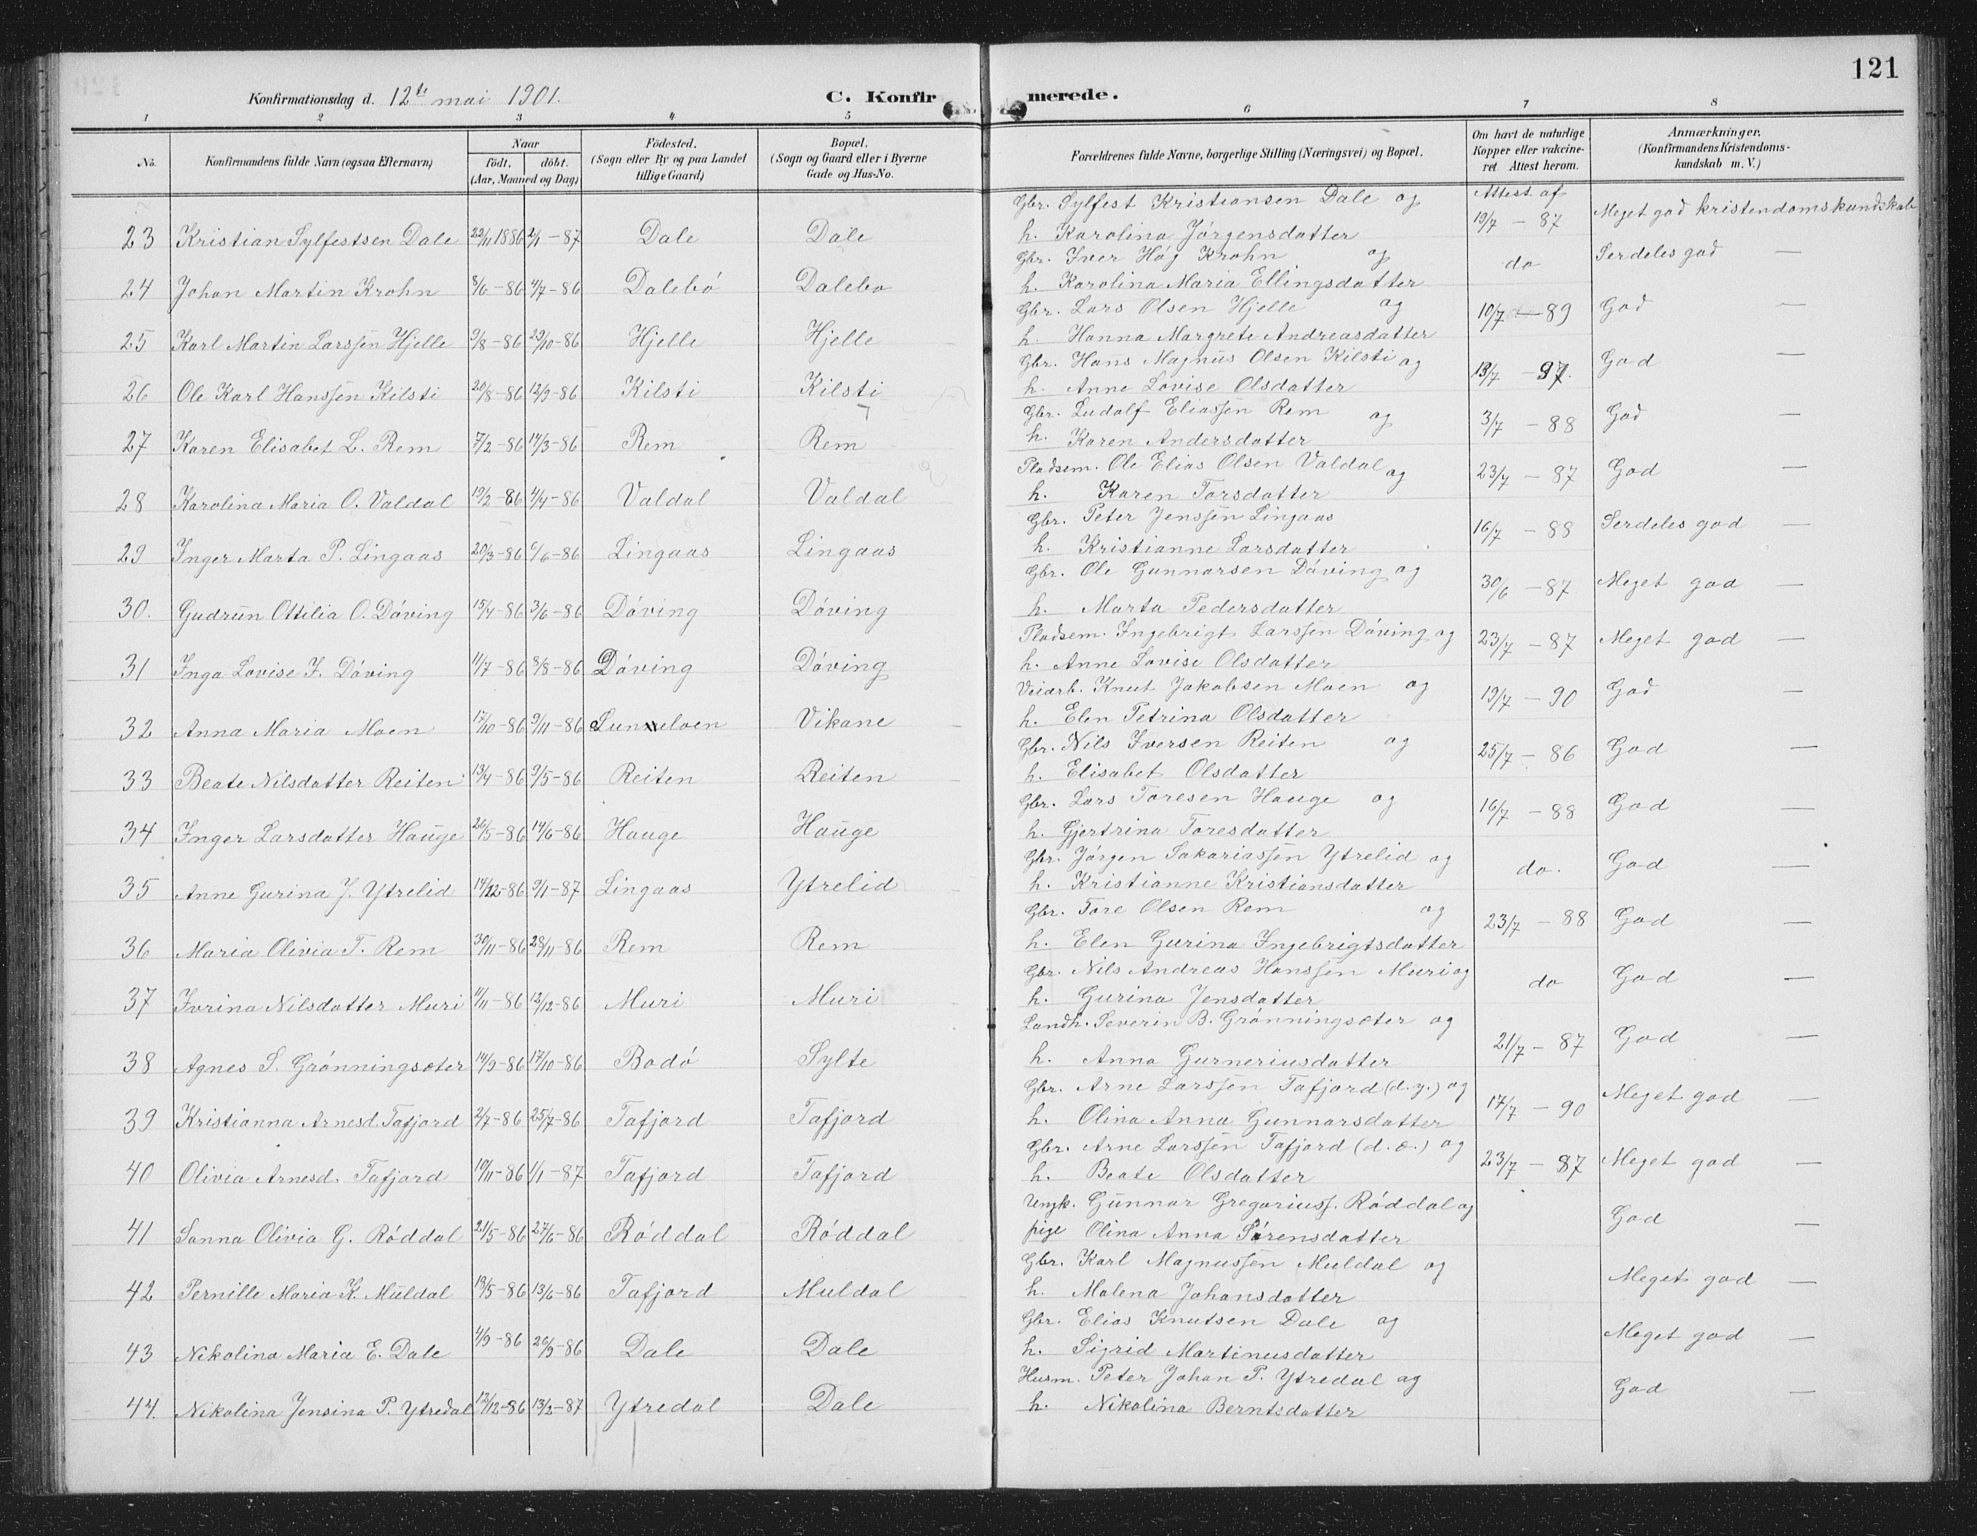 121
Konfirmationsdag d. 12te mai 1901. C. Konfirmerede.
1 2 3 4 5 6 7 8
No. Konfirmandens fulde Navn (ogsaa Efternavn) Naar født, døbt. (Aar, Maaned og Dag) Fødested. (Sogn eller By og paa Landet tillige Gaard) Bopæl. (Sogn og Gaard eller i Byerne Gade og Hus-No. Forældrenes fulde Navne, borgerlige Stilling (Næringsvei) og Bopæl. Om havt de naturlige Kopper eller vakcineret. Attest herom. Anmærkninger. (Konfirmandens Kristendomskundskab m. V.)
Gbr. Sylfest Kristiansen Dale og Attest af
23 Kristian Sylfestsen Dale 22/11 1886 2/1-87 Dale Dale h. Karolina Jørgensdatter 19/7 - 87 Meget god kristendomskundskab
Gbr. Iver Høg Krohn og
24 Johan Martin Krohn 8/6-86 4/7-86 Dalebø Dalebø h. Karolina Maria Ellingsdatter do Serdeles god —
Gbr. Lars Olsen Hjelle og
25 Karl Martin Larssen Hjelle 9/8-86 29/10-86 Hjelle Hjelle h. Hanna Margrete Andreasdatter 10/7 - 89 God —
Gbr. Hans Magnus Olsen Kilsti og
26 Ole Karl Hanssen Kilsti 20/8-86 12/9-86 Kilsti Kilsti h. Anne Lovise Olsdatter 19/7 - 87. God —
Gbr. Ludolf Eliassen Rem og
27 Karen Elisabet L. Rem 7/2-86 14/3-86 Rem Rem h. Karen Andersdatter 3/7 - 88 God —
Pladsem. Ole Elias Olsen Valdal og
28 Karolina Maria O. Valdal 19/2-86 4/4-86 Valdal Valdal h. Karen Torsdatter 23/7 - 87 God —
Gbr. Peter Jenssen Lingaas
29 Inger Marta P. Lingaas 20/3-86 6/6-86 Lingaas Lingaas h. Kristianne Larsdatter 16/7 - 88 Serdeles god —
Gbr. Ole Gunnarsen Døving og
30. Gudrun Ottilia O. Døving 15/4-86 3/6-86 Døving Døving h. Marta Pedersdatter 30/6 - 87 Meget god —
Pladsem. Ingebrigt Larssen Døving og
31 Inga Lovise I. Døving 11/7-86 8/8-86 Døving Døving h. Anne Lovise Olsdatter 23/7 - 87 Meget god —
Veiarb. Knut Jakobsen Moen og
32 Anna Maria Moen 17/10-86 9/11-86 Vikane h. Elen Petrina Olsdatter 19/7 - 90 God —
Gbr. Nils Iversen Reiten og
33 Beate Nilsdatter Reiten 13/4-86 9/5-86 Reiten Reiten h. Elisabet Olsdatter 25/7 - 86 God —
Gbr. Lars Toresen Hauge og
34 Inger Larsdatter Hauge 26/5-86 14/6-86 Hauge Hauge h. Gjertrina Toresdatter 16/7 - 88 God —
Gbr. Jørgen Sakariassen Ytrelid og
35 Anne Gurina J. Ytrelid 14/12-86 9/1-87 Lingaas Ytrelid h. Kristianne Kristiansdatter do. God —
Gbr. Tore Olsen Rem og
36 Maria Olivia T. Rem 30/11-86 28/11-86 Rem Rem h. Elen Gurina Ingebrigtsdatter 23/7 - 88 God —
Gbr. Nils Andreas Hanssen Muri og
37 Ivrina Nilsdatter Muri 11/11-86 12/12-86 Muri Muri h. Gurina Jensdatter do God —
Landh. Severin B. Grønningsæter og
38 Agnes S. Grønningsæter 14/9-86 17/10-86 Bodø Sylte h. Anna Gurneriusdatter 21/7 - 87 God —
Gbr. Arne Larssen Tafjord (d.y.) og
39 Kristianna Arnesd. Tafjord 2/7-86 25/7-86 Tafjord Tafjord h. Olina Anna Gunnarsdatter 17/7 - 90 Meget god —
Gbr. Arne Larssen Tafjord (d.æ.) og
40 Olivia Arnesd. Tafjord 19/11-86 1/1-87 Tafjord Tafjord h. Beate Olsdatter 23/7 - 87 Meget god —
Ungk. Gunnar Gregoriuss. Røddal og
41 Sanna Olivia G. Røddal 21/5-86 27/6-86 Røddal Røddal pige Olina Anna Sørensdatter God —
Gbr. Karl Magnussen Muldal og
42 Pernille Maria K. Muldal 19/5-86 13/6-86 Tafjord Muldal h. Malena Johansdatter Meget god —
Gbr. Elias Knutsen Dale og
43 Nikolina Maria E. Dale 4/9-86 26/9-86 Dale Dale h. Sigrid Martinusdatter Meget god —
Husm. Peter Johan P. Ytredal og
44. Nikolina Jensina P. Ytredal 13/12-86 13/2-87 Ytredal Dale h. Nikolina Berntsdatter God —